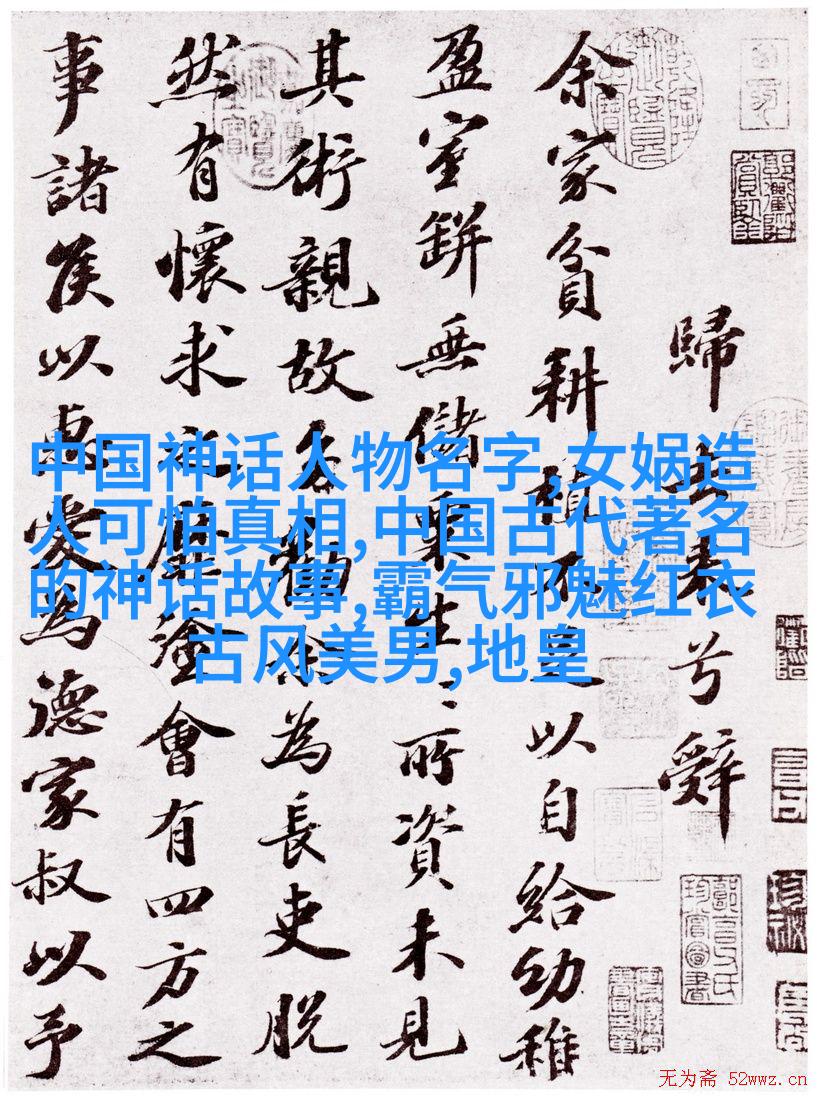 歸去來兮辭
余家貧耕植不足以自給幼稚
盈室缾無儲粟生〻所資未見
其術親故多勸余為長吏脫
然有懷求之靡塗會有四方之
事諸侯以惠愛為德家叔以予
中国神话人物名字,女娲造
人可怕真相,中国古代著名
的神话故事,霸气邪魅红衣
古风美男,地皇
无为斋 52wwz.cn